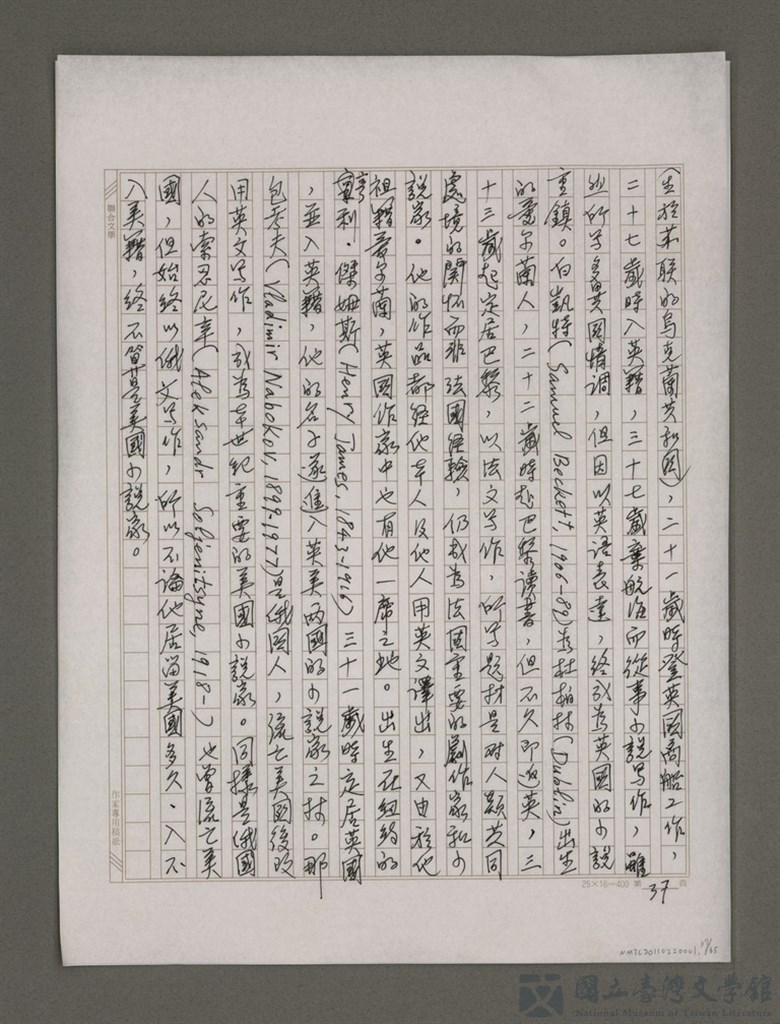 (生於蘇聯的烏克蘭共和國)，二十一歲時登英國商船工作，
二十七歲時入英籍，三十七歲棄航海而從事小說寫作，雖
然所寫多異國情調，但因以英語表達，終成為英國的小說
重鎮。白凱特(Samuel Beckett, 1906-89)为杜柏林(Dublin)出生
的愛尔蘭人，二十二歲時赴巴黎讀書，但不久即返英，三
十三歲起定居巴黎，以法文写作，所寫題材是對人類共同
處境的關怀而非法國經驗，仍成為法國重要的劇作家和小
說家。他的作品都經他本人及他人用英文譯出，又由於他
祖籍愛尔蘭，英國作家中也有他一席之地。出生在紐約的
亨利．傑姆斯(Henry James, 1843-1916)三十一歲時定居英國
，並入英籍，他的名子遂進入英美兩國的小說家之林。那
包考夫(Vladimir Nabokov, 1899-1977)是俄國人，流亡美國後改
用英文写作，成為本世紀重要的美國小說家。同樣是俄國
人的索忍尼辛(Aleksandr Soljenitsyne, 1918-)也曾流亡美
國，但始終以俄文写作，所以不論他居留美國多久、入不
入美籍，終不算是美國小說家。
聯合文學
作家專用稿紙
25×16＝400 第 37 頁
NMTL20110220001
國立臺灣文學館
National Museum of Taiwan Literature